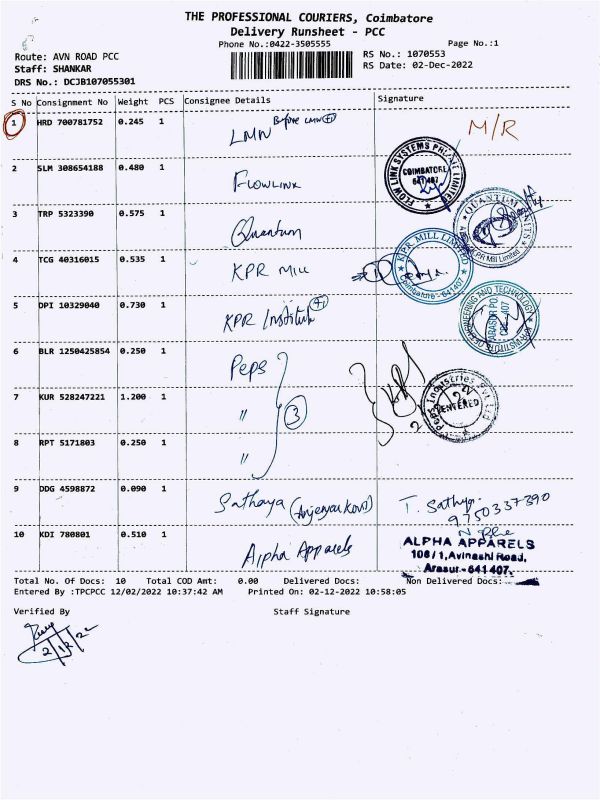 THE PROFESSIONAL COURIERS, Coimbatore
Delivery Runsheet - PCC
Phone No.:0422-3505555 Page No.:1
Route: AVN ROAD PCC RS No.: 1070553
Staff: SHANKAR RS Date: 02-Dec-2022
DRS No.: DCJB107055301
S No Consignment No Weight PCS Consignee Details Signature
1 HRD 700781752 0.245 1 LMW Before LMW M/R
2 SLM 308654188 0.480 1 Flowlink
FLOW LINK SYSTEMS PRIVATE LIMITED COIMBATORE 641 407
3 TRP 5323390 0.575 1 Quantum
QUANTUM KNITS KPR Mill Limited
4 TCG 40316015 0.535 1 KPR Mill
KPR MILL LIMITED Coimbatore - 641 407
5 DPI 10329040 0.730 1 KPR Institute
KPR INSTITUTE OF ENGINEERING AND TECHNOLOGY ARASUR PO. CBE-407
6 BLR 1250425854 0.250 1 Peps
7 KUR 528247221 1.200 1 " 3
Peps Industries Pvt Ltd ENTERED
8 RPT 5171803 0.250 1 "
9 DDG 4598872 0.090 1 Sathaya T. Sathya
9750337390
10 KDI 780801 0.510 1 Alpha Apparels
ALPHA APPARELS
106/1, Avinashi Road,
Arasur - 641 407.
Total No. Of Docs: 10 Total COD Amt: 0.00 Delivered Docs: Non Delivered Docs:
Entered By :TPCPCC 12/02/2022 10:37:42 AM Printed On: 02-12-2022 10:58:05
Verified By Staff Signature
2/12/22